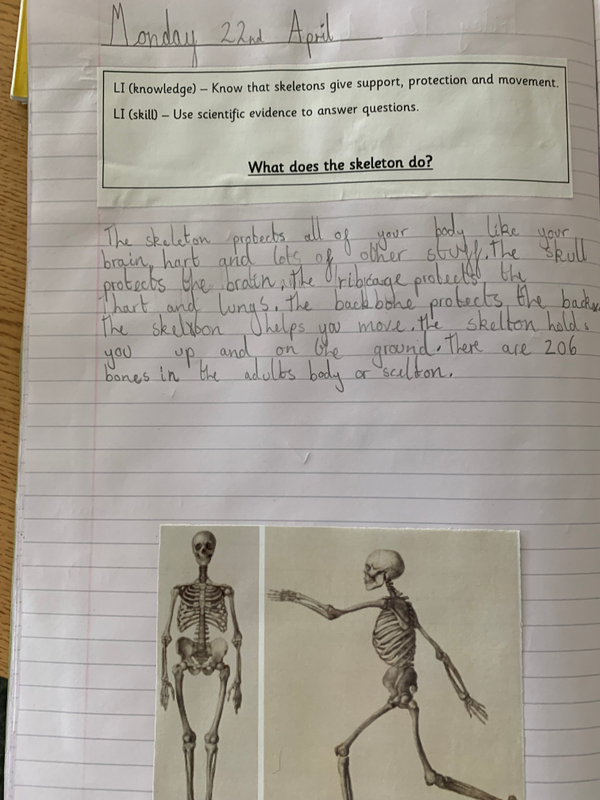 Monday 22nd April
LI (knowledge) – Know that skeletons give support, protection and movement.
LI (skill) – Use scientific evidence to answer questions.
What does the skeleton do?
The skeleton protects all of your body like your
brain, hart and lots of other stuff. The skull
protects the brain, the ribicage protects the
hart and lungs. The backbone protects the back.
The skelton helps you move. the skelton holds
you up and on the ground. There are 206
bones in the adults body or scelton.